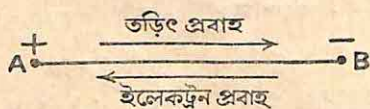 তড়িৎ প্রবাহ
+ −
A B
ইলেকট্রন প্রবাহ